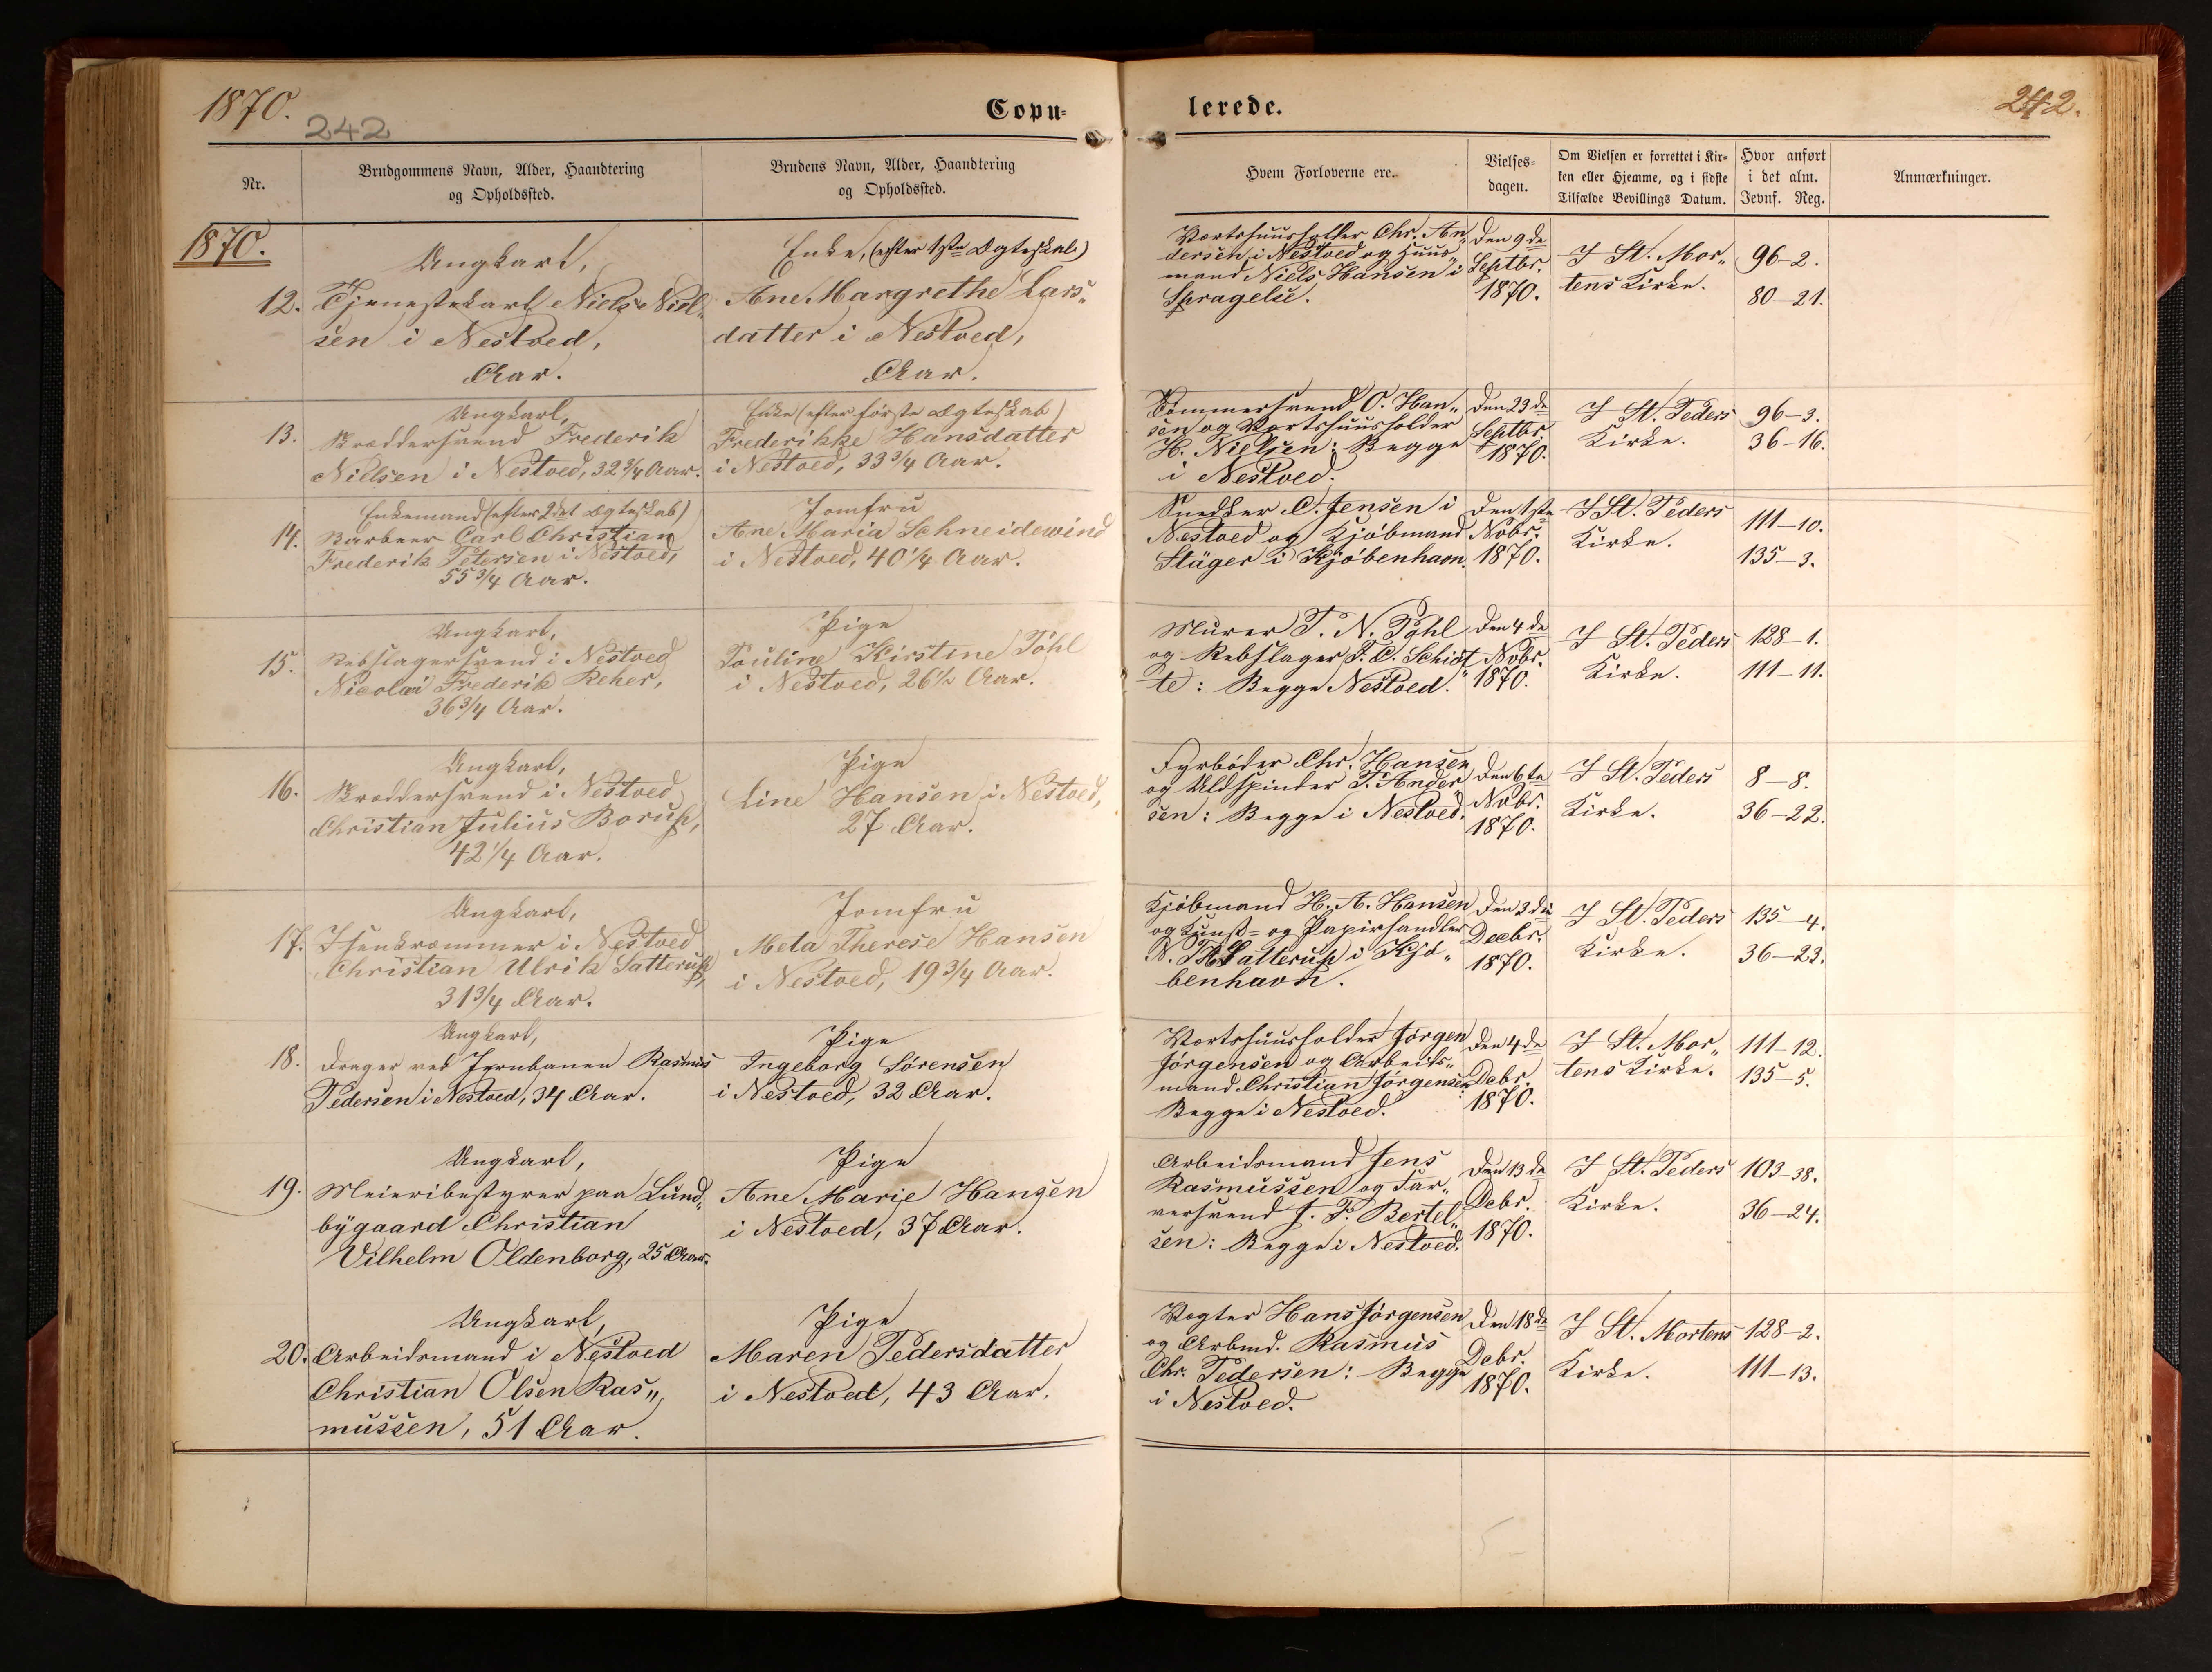 1870.
242
Copu-
lerede.
242.
Nr.
Brudgommens Navn, Alder, Haandtering
og Opholdssted.
Brudens Navn, Alder, Haandtering
og Opholdssted.
Hvem Forloverne ere.
Vielses-
dagen.
Om Vielsen er forrettet i Kir-
ken eller Hjemme, og i sidste
Tilfælde Bevillings Datum.
Hvor anført
i det alm.
Jevnf. Reg.
Anmærkninger.
1870.
12.
Ungkarl,
Tjenestekarl Niels Niel„
sen i Nestved,
Aar.
Enke, (efter 1ste Ægteskab)
Ane Margrethe Lars„
datter i Nestved,
Aar.
Værtshuusholder Chr. An„
dersen i Nestved og Huus„
mand Niels Hansen i
Spragelse.
Den 9de
Septbr.
1870.
I St. Mor„
tens Kirke.
96-2.
80-21.
13.
Ungkarl,
Skræddersvend Frederik
Nielsen i Nestved, 32 3/4 Aar.
Enke (efter første Ægteskab)
Frederikke Hansdatter
i Nestved, 33 3/4 Aar.
Tømmersvend O. Han„
sen og Værtshuusholder
H. Nielsen: Begge
i Nestved.
Den 23de
Septbr.
1870.
I St. Peders
Kirke.
96-3.
36-16.
14.
Enkemand (efter 2det Ægteskab)
Barbeer Carl Christian
Frederik Petersen i Nestved,
55 3/4 Aar.
Jomfru
Ane Maria Schneidewind
i Nestved, 40 1/4 Aar.
Snedker C. Jensen i
Nestved og Kjøbmand
Stäger i Kjøbenhavn.
Den 1ste
Nobr.
1870.
I St. Peders
Kirke.
111-10.
135-3.
15.
Ungkarl,
Rebslagersvend i Nestved
Nicolai Frederik Reher,
36 3/4 Aar.
Pige
Pouline Kirstine Pöhl
i Nestved, 26 1/2 Aar.
Murer T. N. Pöhl
og Rebslager F. C. Schiøt„
te: Begge Nestved.
Den 4de
Nobr.
1870.
I St. Peders
Kirke.
128-1.
111-11.
16.
Ungkarl,
Skræddersvend i Nestved
Christian Julius Borup,
42 1/4 Aar.
Pige
Line Hansen i Nestved,
27 Aar.
Fyrbøder Chr. Hansen
og Uldspinder P. Ander„
sen: Begge i Nestved.
Den 6te
Nobr.
1870.
I St. Peders
Kirke.
8-8.
36-22.
17.
Ungkarl,
Isenkræmmer i Nestved
Christian Ulrik Satterup,
31 3/4 Aar.
Jomfru
Meta Therese Hansen
i Nestved, 19 3/4 Aar.
Kjøbmand H. A. Hansen
og Kunst- og Papirhandler
Satterup i Kjø„
benhavn.
Den 3die
Decbr.
1870.
I St. Peders
Kirke.
135-4.
36-23.
18.
Ungkarl,
Drager ved Jernbanen Rasmus
Pedersen i Nestved, 34 Aar.
Pige
Ingeborg Sørensen
i Nestved, 32 Aar.
Værtshuusholder Jørgen
Jørgensen og Arbeids„
mand Christian Jørgensen:
Begge i Nestved.
Den 4de
Debr.
1870.
I St. Mor„
tens Kirke.
111-12.
135-5.
19.
Ungkarl,
Meieribestyrer paa Lund„
bygaard Christian
Vilhelm Oldenborg, 25 Aar.
Pige
Ane Marie Hansen
i Nestved, 37 Aar.
Arbeidsmand Jens
Rasmussen og Far„
versvend J. F. Bertel„
sen: Begge i Nestved.
Den 13de
Debr.
1870.
I St. Peders
Kirke.
103-38.
36-24.
20.
Ungkarl,
Arbeidsmand i Nestved
Christian Olsen Ras„
mussen, 51 Aar.
Pige
Maren Pedersdatter
i Nestved, 43 Aar.
Vogter Hans Jørgensen
og Arbmd. Rasmus
Chr. Pedersen: Begge
i Nestved.
Den 18de
Debr.
1870.
I St. Mortens
Kirke.
128-2.
111-13.